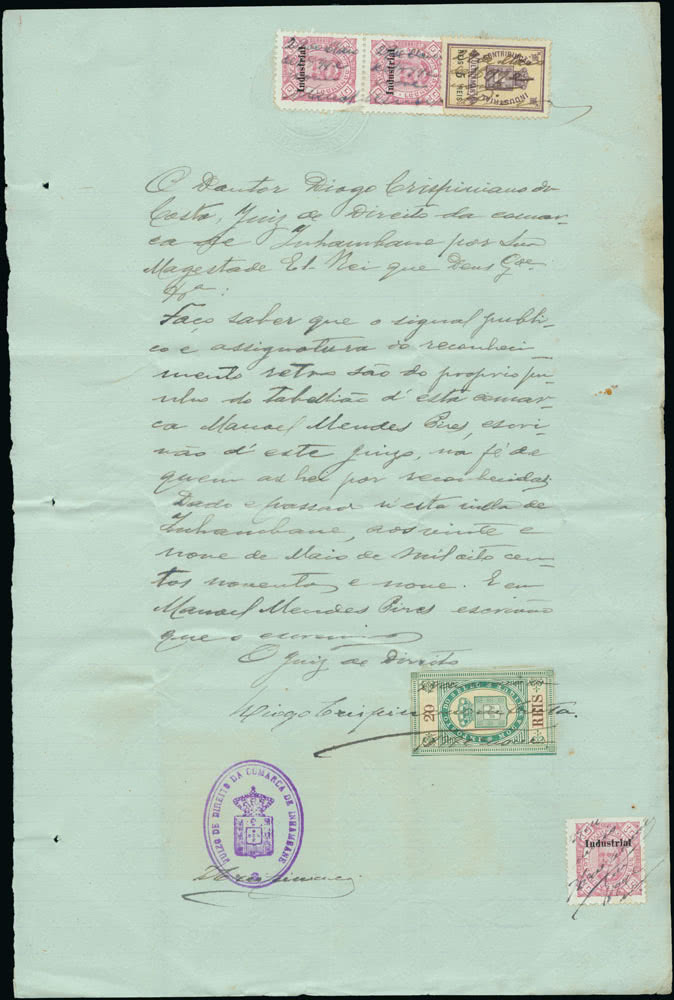 Industrial
Industrial
CONTRIBUIÇÃO
INDUSTRIAL
5 REIS
O Doutor Diogo Crispiniano da
Costa, Juiz de Direito da comar-
ca de Inhambane por Sua
Magestade El-Rei que Deus G.de
Faço saber que o signal publi-
co e assignatura do reconheci-
mento retro são do proprio pu-
nho do tabellião d'esta comar-
ca Manoel Mendes Pires, escri-
vão d'este juizo, na fé de
quem as hei por reconhecidas.
Dado e passado n'esta villa de
Inhambane, aos vinte e
nove de Maio de mil oito cen-
tos noventa e nove. E eu
Manoel Mendes Pires escrivão
que o escrevi
O Juiz de Direito
Diogo Crispiniano da Costa.
IMPOSTO DO SELLO
20 REIS
JUIZO DE DIREITO DA COMARCA DE INHAMBANE
Industrial